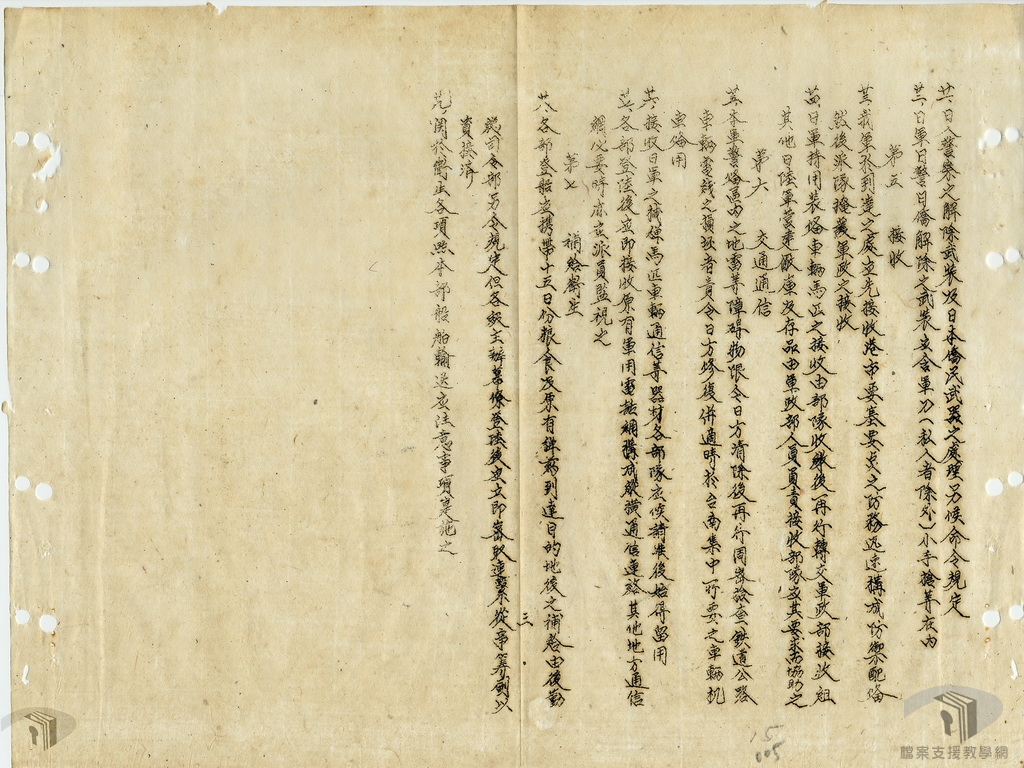 廿一、日人警察之解除武裝及日本僑民武器之處理另候命令規定
廿二、日軍日警日僑解除之武裝應含軍刀(私人者除外)小手槍等在內
第五 接收
廿三、我軍於到達之處應先接收港市要塞要点之防務迅速構成防禦配備
然後派隊掩護軍政之接收
廿四、日軍持用裝備車輛馬匹之接收由部隊收繳後再行轉交軍政部接收組
其他日陸軍營建廠庫及存品由軍政部人員負責接收部隊應其要求而協助之
第六 交通通信
廿五、本軍警備區內之地雷等障碍物限令日方清除後再行周密檢查鉄道公路
車輛電綫之損毀者責令日方修復併適時於台南集中所要之車輛机
車備用
廿六、接收日軍之械彈馬匹車輛通信等器材各部隊应候請準後始得留用
廿七、各部登陸後应即接收原有軍用電話網構成縱橫通信連絡其他地方通信
網必要時亦应派員監視之
第七 補給衛生
廿八、各部登船应攜帶十五日份粮食及原有鉀葯到達目的地後之補給由後勤
總司令部另令規定但各級主辦幕僚登陸後应立即密取連繫從事籌劃以
資接濟
廿九、関於衛生各項照本部船舶輸送应注意事項実施之
三
15
005
檔案支援教學網